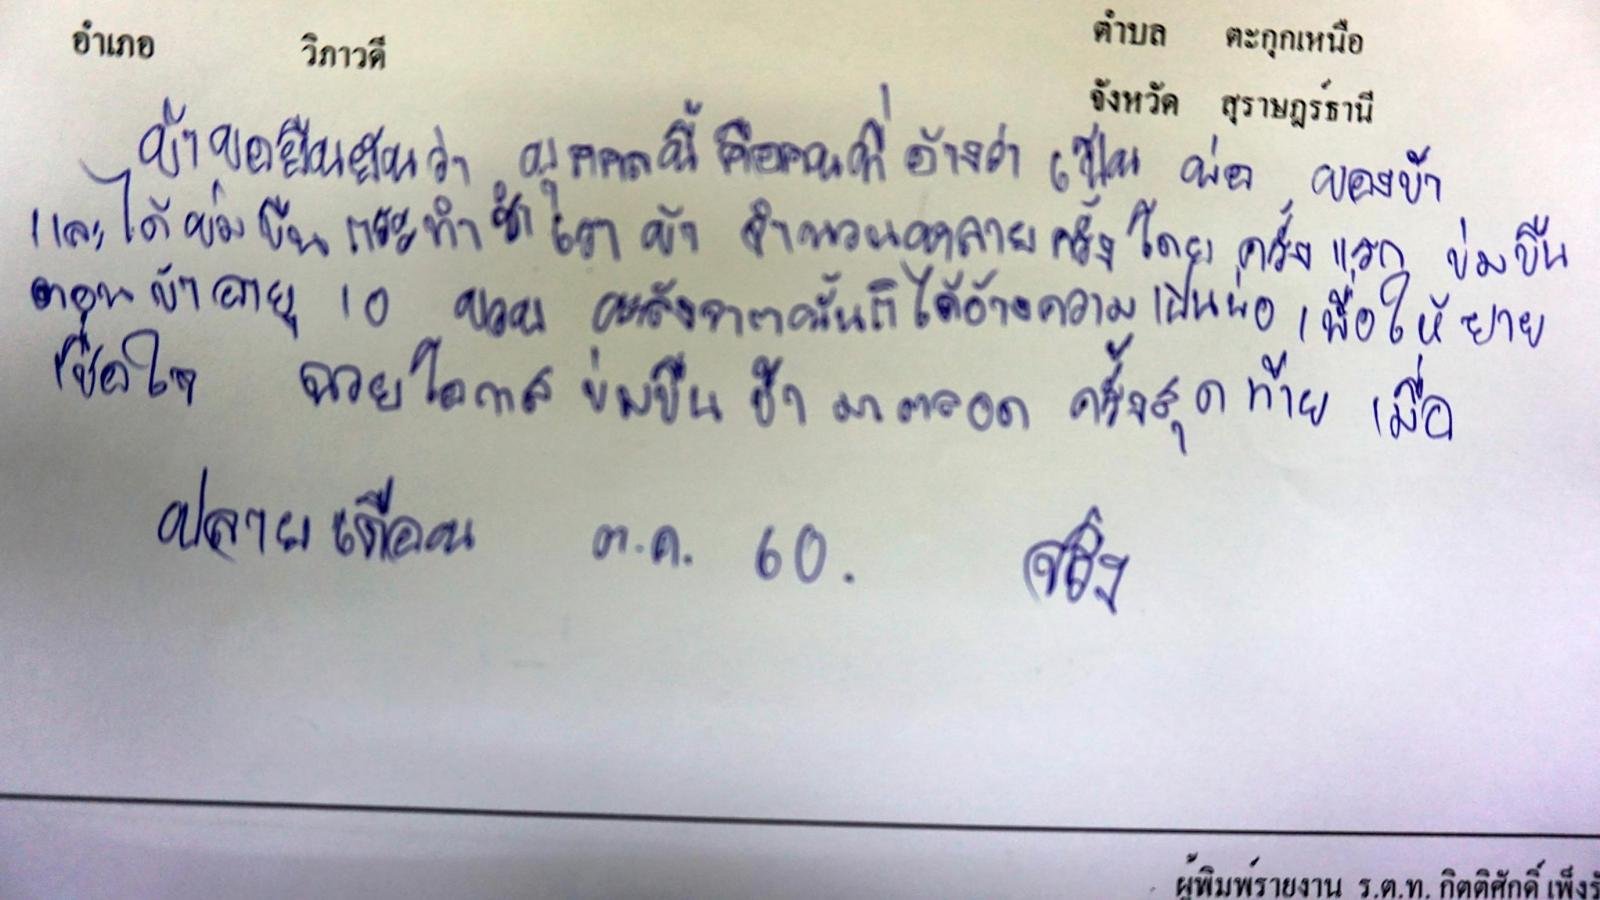 อำเภอ วิภาวดี ตำบล ตะกุกเหนือ
จังหวัด สุราษฎร์ธานี
ข้าฯขอยืนยันว่า บุคคลนี้ คือคนที่ อ้างว่า เป็น พ่อ ของข้า
และได้ข่มขืน กระทำชำเรา ข้า จำนวนหลายครั้ง โดย ครั้งแรก ข่มขืน
ตอน ข้าฯ อายุ 10 ขวบ หลังจากนั้นก็ได้อ้างความเป็นพ่อ เพื่อให้ยาย
เชื่อใจ ฉวยโอกาส ข่มขืน ข้า มาตลอด ครั้งสุดท้าย เมื่อ
ปลายเดือน ต.ค. 60. จริง
ผู้พิมพ์รายงาน ร.ต.ท. กิตติศักดิ์